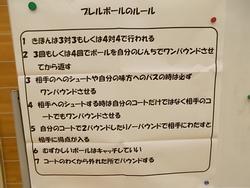 プレルボールのルール
1 きほんは3対3もしくは4対4で行われる
2 3回もしくは4回でボールを自分のじんちでワンバウンドさせ
てから返す
3 相手のへのシュートや自分の味方へのパスの時は必ず
ワンバウンドさせる
4 相手へのシュートする時は自分のコートだけではなく相手のコ
ートでもワンバウンドさせる
5 自分のコートで2バウンドしたりノーバウンドで相手にわたすと
相手に得点が入る
6 むずかしいボールはキャッチしていい
7 コートのわくから外れた所でバウンドする